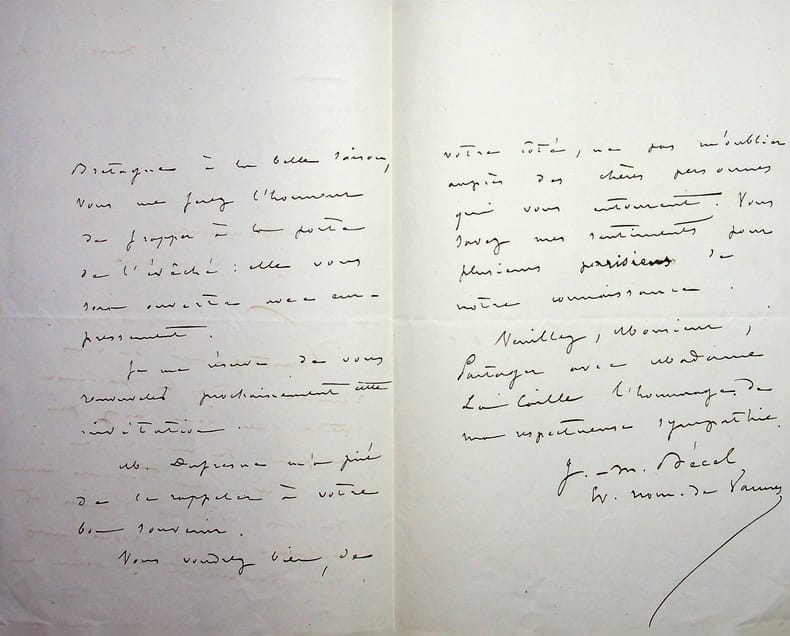 Bretagne à la belle saison,
vous me ferez l'honneur
de frapper à la porte
de l'évêché : elle vous
sera ouverte avec em-
pressement.
Je me réserve de vous
renouveler prochainement cette
invitation.
M. Dufresne m'a prié
de le rappeler à votre
bon souvenir.
Vous voudrez bien, de
votre côté, ne pas m'oublier
auprès des chères personnes
qui vous entourent. Vous
savez mes sentiments pour
plusieurs parisiens de
notre connaissance.
Veuillez, Monsieur,
Partager avec Madame
l'hommage de
ma respectueuse sympathie.
J.-M. Bécel
Ev. nom. de Vannes